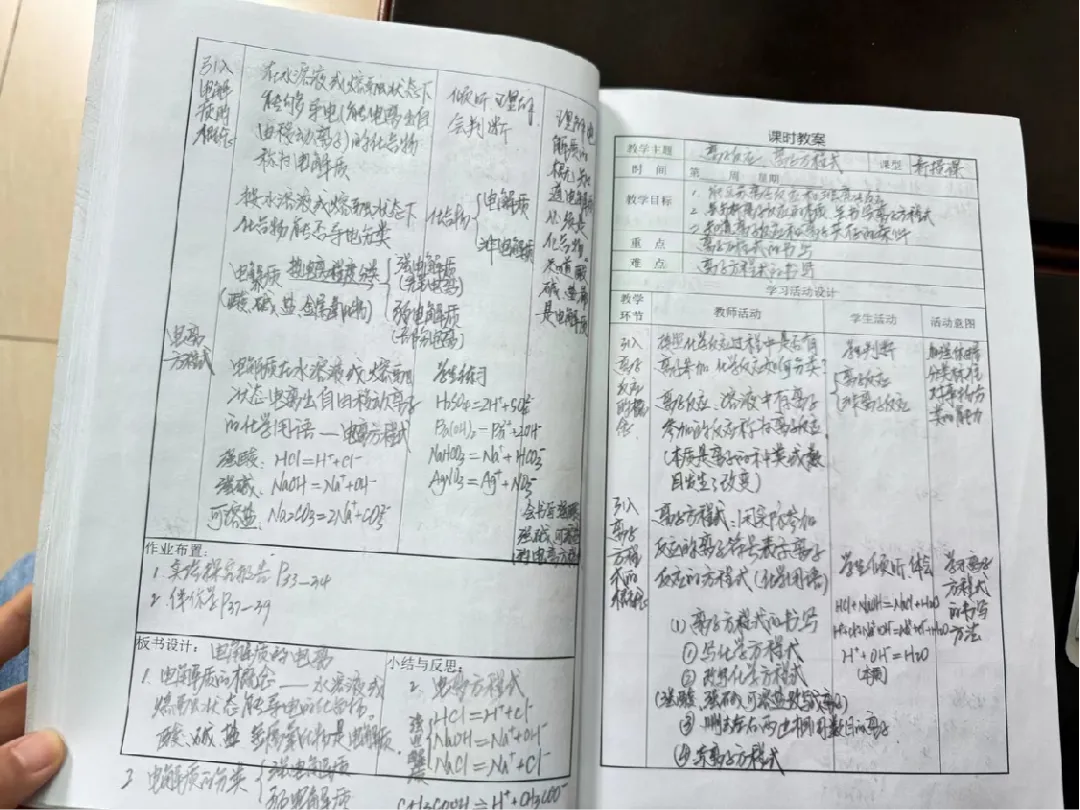 引入
电解
质的
概念
在水溶液或熔融状态下
能够导电(能电离出自
由移动离子)的化合物
称为电解质
倾听 理解
会判断
按水溶液或熔融状态下
化合物能否导电分类
化合物
电解质
非电解质
电解质 按电离程度分类
强电解质
(完全电离)
(酸、碱、盐、金属氧化物)
弱电解质
(部分电离)
理解电
解质的
概念,知
道电解质
必须是
化合物,
知道酸
碱、盐都
是电解质
电离
方程式
电解质在水溶液或熔融
状态电离出自由移动离子
的化学用语——电离方程式
强酸: HCl=H⁺+Cl⁻
强碱: NaOH=Na⁺+OH⁻
可溶盐: Na₂CO₃=2Na⁺+CO₃²⁻
学生练习
H₂SO₄=2H⁺+SO₄²⁻
Ba(OH)₂=Ba²⁺+2OH⁻
NaHCO₃=Na⁺+HCO₃⁻
AgNO₃=Ag⁺+NO₃⁻
会书写强酸
强碱、可溶盐
的电离方程式
作业布置:
1. 实验探究报告 P33-34
2. 伴你学P37-39
板书设计: 电解质的电离
1. 电解质的概念——水溶液或
熔融状态能导电的化合物。
酸、碱、盐、金属氧化物是电解质。
2 电解质的分类
强电解质
弱电解质
小结与反思:
2. 电离方程式
HCl=H⁺+Cl⁻
NaOH=Na⁺+OH⁻
NaCl=Na⁺+Cl⁻
CH₃COOH⇌H⁺+CH₃COO⁻
课时教案
教学主题 离子反应 离子方程式 课型 新授课
时 间 第 周 星期
教学目标
重 点 离子方程式的书写
难 点 离子方程式的书写
学习活动设计
教学
环节
教师活动
学生活动
活动意图
引入
离子
反应
的概
念
按照化学反应过程中是否有
离子参加 化学反应如何分类?
离子反应:溶液中有离子
参加的反应称为离子反应。
(本质是离子的种类或数
目发生了改变)
学生判断
离子反应
非离子反应
引入
离子
方程
式的
概念
离子方程式:用实际参加
反应的离子符号表示离子
反应的方程式(化学用语)
(1) 离子方程式的书写
① 写化学方程式
② 改写化学方程式
(强酸、强碱、可溶盐改写成离子)
③ 删去左右两边相同数目的离子
④ 写离子方程式
学生倾听,体会
HCl+NaOH=NaCl+H₂O
H⁺+Cl⁻+Na⁺+OH⁻=Na⁺+Cl⁻+H₂O
H⁺+OH⁻=H₂O
(本质)
学习离子
方程式
的书写
方法